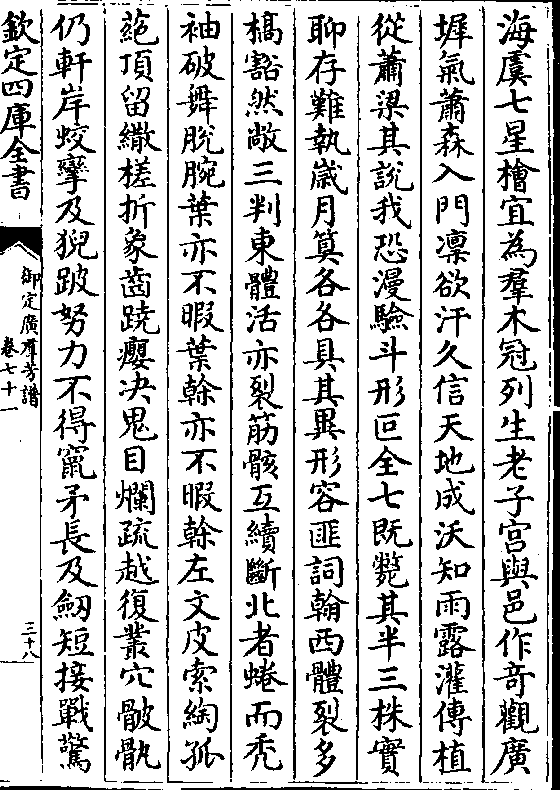 海虞七星檜宜為羣木冠列生老子宮與邑作竒觀廣
墀氣蕭森入門凛欲汗久信天地成沃知雨露灌傳植
從蕭梁其說我恐漫驗斗形叵全七既斃其半三株實
聊存難執歳月筭各各具其異形容匪詞翰西體裂多
槁豁然敞三判東體活亦裂筋骸互續斷北者蜷而秃
袖破舞脫腕葉亦不暇葉榦亦不暇榦左文皮索綯孤
葩頂留繖槎折象齒踡癭决鬼目爛疏越復叢穴骳骫
仍軒岸蛟孿及猊跛努力不得竄矛長及劒短接戰驚
欽定四庫全書
御定廣羣芳譜
卷七十一
三十八